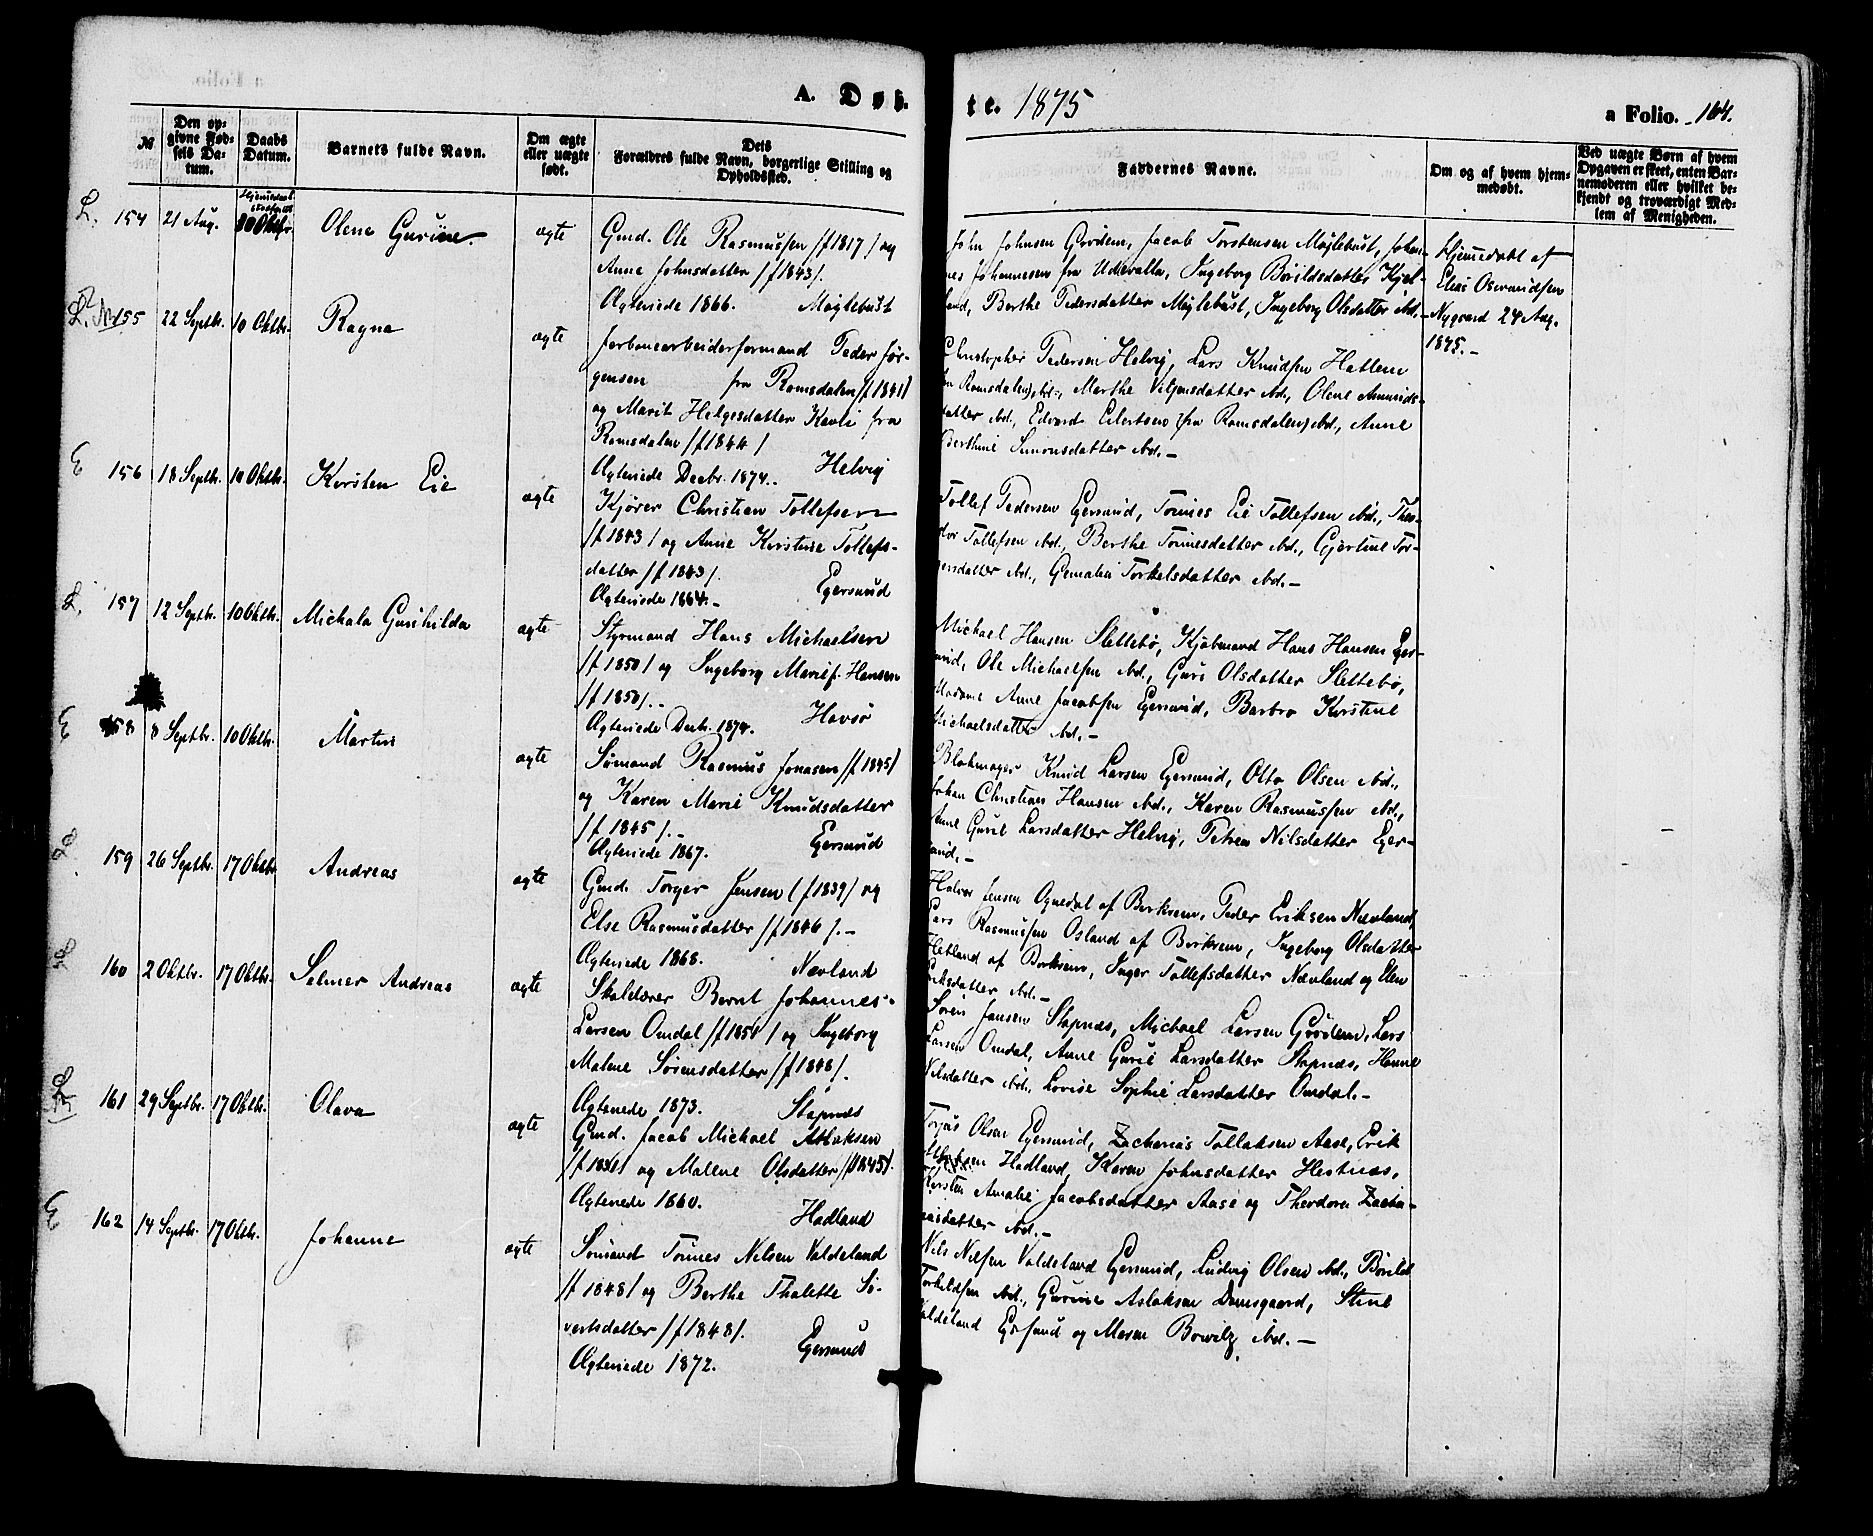 A. Døb-
te. 1875
a Folio. 164.
№
Den op-
givne Fød-
sels Da-
tum.
Daabs
Datum.
Barnets fulde Navn.
Om ægte
eller uægte
født.
Dets
Forældres fulde Navn, borgerlige Stilling og
Opholdssted.
Faddernes Navne.
Om og af hvem hjem-
medøbt.
Ved uægte Børn af hvem
Opgaven er skeet, enten Bar-
nemoderen eller hvilket be-
kjendt og troværdigt Med-
lem af Menigheden.
L. 154 21 Aug. Oktbr. Olene Gurine. ægte
Gmd. Ole Rasmussen /f 1817/ og
Anne Johnsdatter /f 1843/.
Ægteviede 1866. Møglebust
John Johnsen Grødem, Jacob Torstensen Møglebust, Johan-
nes Johannesen fra Udevalla, Ingeborg Bårildsdatter Kjel-
land, Berthe Pedersdatter Møglebust, Ingeborg Olsdatter ibd.-
Hjemedøbt af
Elias Osmundsen
Nygaard 24 Aug.
1875.-
L. 155 22 Septbr. 10 Oktbr. Ragna ægte
Jerbanearbeiderformand Peder Jør-
gensen fra Romsdalen /f 1841/
og Marit Helgesdatter Kavli fra
Romsdalen /f 1844/
Ægteviede Decbr. 1874. Helvig
Christopher Pedersen Helvig, Lars Knudsen Hatlem
(fra Romsdalen), ibd., Marthe Viljensdatter ibd., Olene Amunds-
datter ibd., Edvard Eilertsen (fra Romsdalen) ibd., Anne
Berthine Simonsdatter ibd.-
E 156 18 Septbr. 10 Oktbr. Kirsten Eie ægte
Kjører Christian Tollefsen
/f 1843/ og Anne Kirstine Tollefs-
datter /f 1843/.
Ægteviede 1864.- Egersund
Tollef Pedersen Egersund, Tønnes Eie Tollefsen ibd., Theo-
dor Tollefsen ibd., Berthe Tønnesdatter ibd., Gjertine Tor-
gersdatter ibd., Gemalie Torkelsdatter ibd.-
L. 157 12 Septbr. 10 Oktbr. Michala Gunhilda ægte
Styrmand Hans Michaelsen
/f 1850/ og Ingeborg Marie f. Hansen
/f 1850/.-
Ægteviede Decbr. 1874. Havsø
Michael Hansen Slettebø, Kjøbmand Hans Hansen Eger-
sund, Ole Michaelsen ibd., Guri Olsdatter Slettebø,
Madame Anne Jacobsen Egersund, Barbro Kirstine
Michaelsdatter ibd.-
E 158 8 Septbr. 10 Oktbr. Martin ægte
Sømand Rasmus Jonasen /f 1845/
og Karen Marie Knudsdatter
/f 1845/.-
Ægteviede 1867. Egersund
Blokmager Knud Larsen Egersund, Otto Olsen ibd.,
Johan Christian Hansen ibd., Karen Rasmussen ibd.,
Anne Gurie Larsdatter Helvig, Petrea Nilsdatter Eger-
sund.-
L 159 26 Septbr. 17 Oktbr. Andreas ægte
Gmd. Torger Jensen (f 1839) og
Else Rasmusdatter /f 1846/.-
Ægteviede 1868. Nævland
Halvor Jensen Ognedal af Birkrem, Peder Eriksen Nævland,
Lars Rasmussen Osland af Birkrem, Ingeborg Olsdatter
Hetland af Birkrem, Inger Tollefsdatter Nævland og Elen
Eriksdatter ibd.-
L 160 2 Oktbr. 17 Oktbr. Selmer Andreas ægte
Skolelærer Bernt Johannes
Larsen Omdal /f 1851/ og Ingeborg
Malene Sørensdatter /f 1848/.
Ægteviede 1873. Stapnæs
Søren Jansen Stapnæs, Michael Larsen Grødem, Lars
Larsen Omdal, Anne Gurie Larsdatter Stapnæs, Hanne
Nilsdatter ibd. Lovise Sophie Larsdatter Omdal.-
L 161 29 Septbr. 17 Oktbr. Olava ægte
Gmd. Jacob Michael Atlaksen
/f 1831/ og Malene Olsdatter /f 1845/.
Ægteviede 1860. Hadland
Torjus Olsen Egersund, Zacharias Tollaksen Aase, Erik
Hadland, Karen Johnsdatter Hestnæs,
Kirsten Amalie Jacobsdatter Aase og Theodora Zacha-
riasdatter ibd.-
E 162 14 Septbr. 17 Oktbr. Johanne ægte
Sømand Tønnes Nilsen Valdeland
/f 1848/ og Berthe Thalette Si-
vertsdatter /f 1848/.
Ægteviede 1872. Egersund
Nils Nilsen Valdeland Egersund, Ludvig Olsen ibd., Bårild
Torkildsen ibd., Gurine Aslaksen Damsgaard, Stine
Valdeland Egersund og Maren Bowitz ibd.-